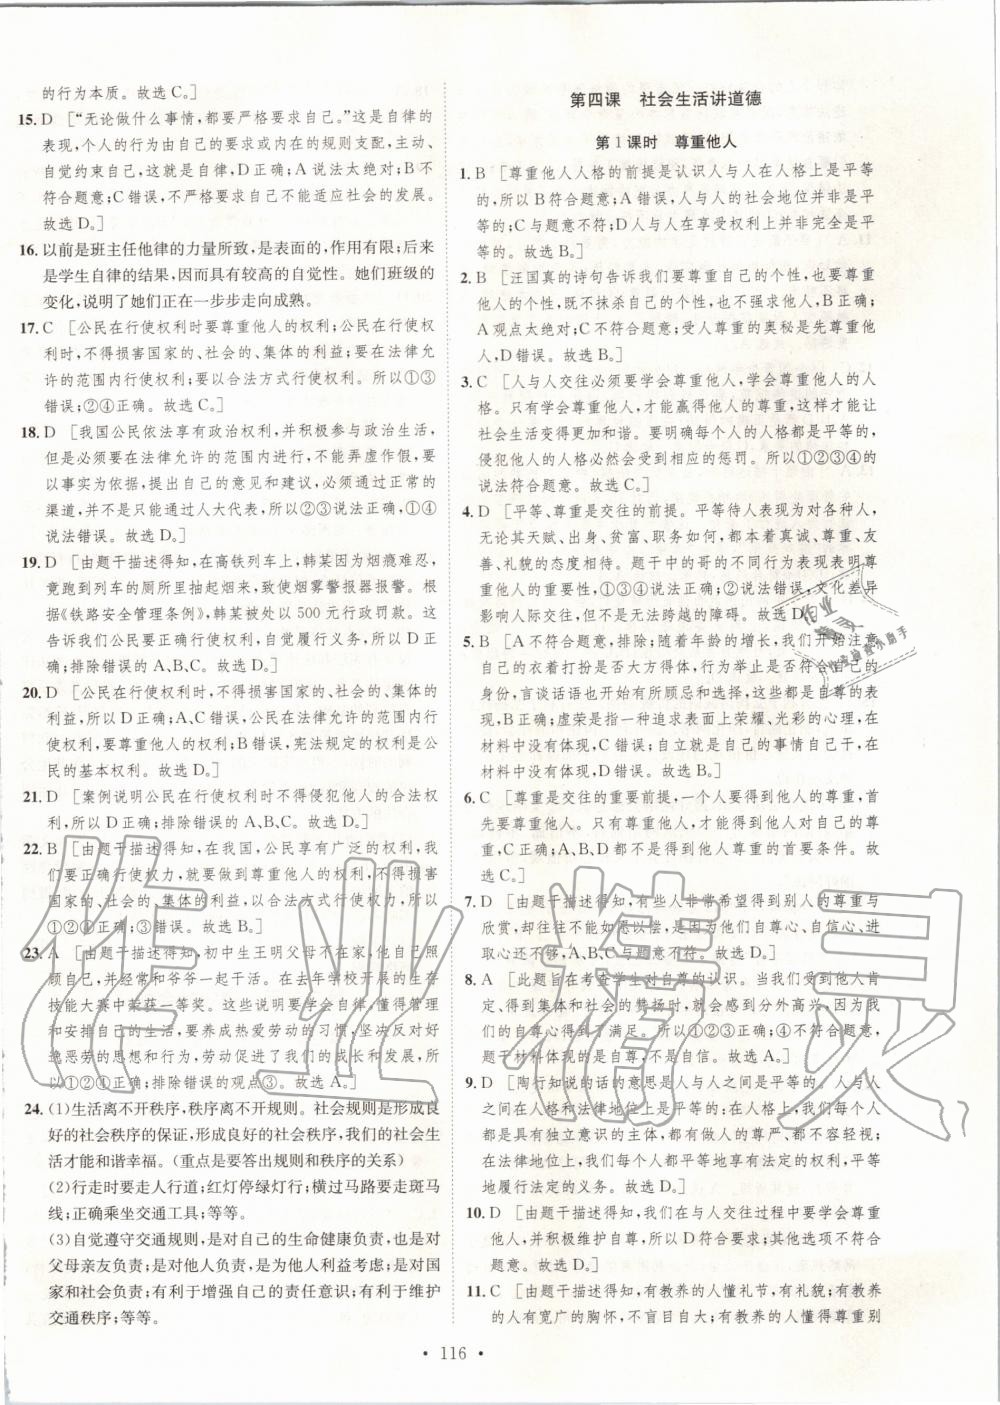 的行为本质。故选C。]
15. D [“无论做什么事情,都要严格要求自己。”这是自律的
表现,个人的行为由自己的要求或内在的规则支配,主动、
自觉约束自己,这就是自律,D正确;A说法太绝对;B不
符合题意;C错误,不严格要求自己不能适应社会的发展。
故选D。]
16. 以前是班主任他律的力量所致,是表面的,作用有限;后来
是学生自律的结果,因而具有较高的自觉性。她们班级的
变化,说明了她们正在一步步走向成熟。
17. C [公民在行使权利时要尊重他人的权利;公民在行使权
利时,不得损害国家的、社会的、集体的利益;要在法律允
许的范围内行使权利;要以合法方式行使权利。所以①③
错误;②④正确。故选C。]
18. D [我国公民依法享有政治权利,并积极参与政治生活,
但是必须要在法律允许的范围内进行,不能弄虚作假,要
以事实为依据,提出自己的意见和建议,必须通过正常的
渠道,并不是只能通过人大代表,所以②③说法正确,①④
说法错误。故选D。]
19. D [由题干描述得知,在高铁列车上,韩某因为烟瘾难忍,
竟跑到列车的厕所里抽起烟来,致使烟雾警报器报警。根
据《铁路安全管理条例》,韩某被处以500元行政罚款。这
告诉我们公民要正确行使权利,自觉履行义务,所以D正
确;排除错误的A、B、C。故选D。]
20. D [公民在行使权利时,不得损害国家的、社会的、集体的
利益,所以D正确;A、C错误,公民在法律允许的范围内行
使权利,要尊重他人的权利;B错误,宪法规定的权利是公
民的基本权利。故选D。]
21. D [案例说明公民在行使权利时不得侵犯他人的合法权
利,所以D正确;排除错误的A、B、C。故选D。]
22. B [由题干描述得知,在我国,公民享有广泛的权利,但要
正确行使权力,不能随意行使权利,行使权利不得损害
国家的、社会的、集体的利益以及他人的合法权利,所以
①②④正确;③错误。故选B。]
23. A [由题干描述得知,初中生王明父母不在家,自己照
顾自己,并经常和爷爷一起干活。在去年学校开展的生存
技能大赛中荣获一等奖。这些说明要学会自律,懂得管理
和安排自己的生活,要养成热爱劳动的习惯,坚决反对好
逸恶劳的思想和行为,劳动促进了我们的成长和发展,所
以①②④正确,排除错误的观点③。故选A。]
24. (1)生活离不开秩序,秩序离不开规则。社会规则是形成良
好的社会秩序的保证,形成良好的社会秩序,我们的社会生
活才能和谐幸福。(重点是要答出规则和秩序的关系)
(2)行走时要走人行道;红灯停绿灯行;横过马路要走斑马
线;正确乘坐交通工具;等等。
(3)自觉遵守交通规则,是对自己的生命健康负责,也是对
父母亲友负责;是对他人负责,是为他人利益考虑;是对国
家和社会负责;有利于增强自己的责任意识;有利于维护
交通秩序;等等。
第四课 社会生活讲道德
第1课时 尊重他人
1. B [尊重他人人格的前提是认识人与人在人格上是平等
的,所以B符合题意;A错误,人与人的社会地位并非平等
的;C与题意不符;D人与人在享受权利上并非完全是平
等的。故选B。]
2. B [汪国真的诗句告诉我们要尊重自己的个性,也要尊重
他人的个性,既不抹杀自己的个性,也不强求他人,B正确;
A观点太绝对;C不符合题意;受人尊重的奥秘是先尊重他
人,D错误。故选B。]
3. C [人与人交往必须要学会尊重他人,学会尊重他人的人
格。只有学会尊重他人,才能赢得他人的尊重,这样才能让
社会生活变得更加和谐。要明确每个人的人格都是平等的,
侵犯他人的人格必然会受到相应的惩罚。所以①②③④的
说法符合题意。故选C。]
4. D [平等、尊重是交往的前提。平等待人表现为对各种人,
无论其天赋、出身、贫富、职务如何,都本着真诚、尊重、友
善、礼貌的态度相待。题干中的哥的不同行为表现表明尊
重他人的重要性,①③④说法正确;②说法错误,文化差异
影响人际交往,但不是无法跨越的障碍。故选D。]
5. B [A不符合题意,排除;随着年龄的增长,我们开始注意
自己的衣着打扮是否大方得体,行为举止是否符合自己的
身份,言谈话语也开始有所顾忌和选择,说明我们有自尊
心,B正确;虚荣是指一种追求表面上荣耀、光彩的心理,在
材料中没有体现,C错误;自立就是自己的事情自己干,在
材料中没有体现,D错误。故选B。]
6. C [尊重是交往的重要前提,一个人要得到他人的尊重,首
先要尊重他人。只有尊重他人,才能得到他人对自己的尊
重,C正确;A、B、D都不是得到他人尊重的首要条件。故
选C。]
7. D [由题干描述得知,有些人非常希望得到别人的尊重与
欣赏,却往往不能如愿以偿,是因为他们自尊心、自信心、进
取心还不够,A、B、C均与题意不符。故选D。]
8. A [此题旨在考查学生对自尊的认识。当我们受到他人肯
定,得到集体和社会的赞扬时,就会感到分外高兴,因为我们
的自尊心得到了满足。所以①②③正确;④不符合题意,
题干材料体现的是自尊,不是自信。故选A。]
9. D [陶行知说的话的意思是人与人之间是平等的。人与人
在人格和法律地位上是平等的:在人格上,我们每个人都是
具有独立意识的主体,都有做人的尊严,都不容轻视;
在法律地位上,我们每个人都平等地享有法定的权利,平等
地履行法定的义务。故选D。]
10. D [由题干描述得知,我们在与人交往过程中要学会尊重
他人,并积极维护自尊,所以D正确;其他选项不符合
题意。故选D。]
11. C [由题干描述得知,有教养的人懂礼节,有礼貌;有教养
的人有宽广的胸怀,不盲目自大;有教养的人懂得尊重别
• 116 •
作业精灵